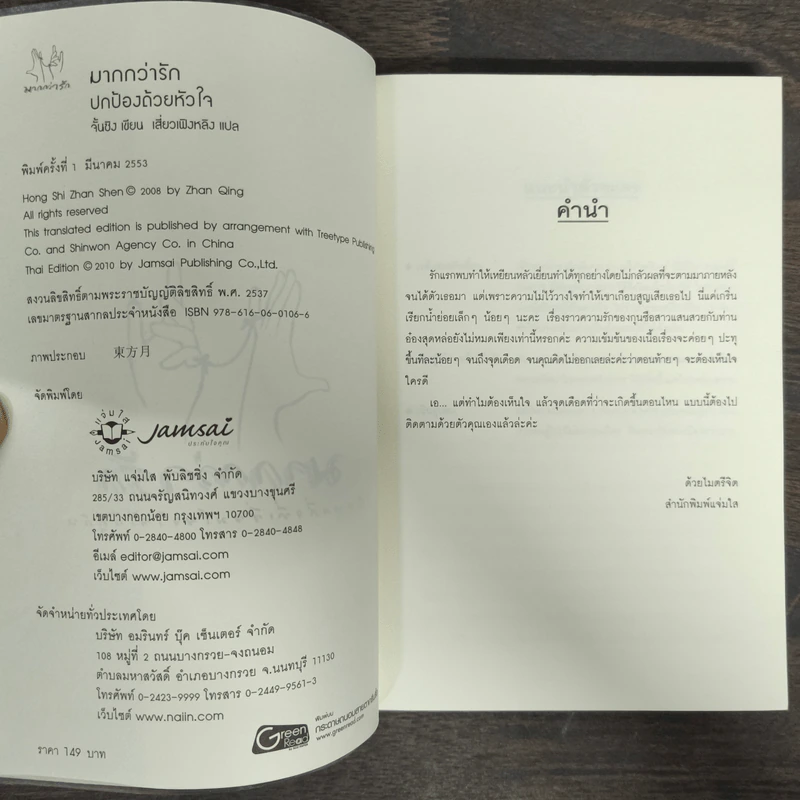 มากกว่ารัก
มากกว่ารัก
ปกป้องด้วยหัวใจ
จั้นชิง เขียน เสี่ยวเฟิงหลิง แปล
พิมพ์ครั้งที่ 1 มีนาคม 2553
Hong Shi Zhan Shen © 2008 by Zhan Qing
All rights reserved
This translated edition is published by arrangement with Treetype Publishing
Co. and Shinwon Agency Co. in China
Thai Edition © 2010 by Jamsai Publishing Co.,Ltd.
สงวนลิขสิทธิ์ตามพระราชบัญญัติลิขสิทธิ์ พ.ศ. 2537
เลขมาตรฐานสากลประจำหนังสือ ISBN 978-616-06-0106-6
ภาพประกอบ 東方月
จัดพิมพ์โดย
แจ่มใส
Jamsai
Jamsai
ประทับใจคุณ
บริษัท แจ่มใส พับลิชชิ่ง จำกัด
285/33 ถนนจรัญสนิทวงศ์ แขวงบางขุนศรี
เขตบางกอกน้อย กรุงเทพฯ 10700
โทรศัพท์ 0-2840-4800 โทรสาร 0-2840-4848
อีเมล์ editor@jamsai.com
เว็บไซต์ www.jamsai.com
จัดจำหน่ายทั่วประเทศโดย
บริษัท อมรินทร์ บุ๊ค เซ็นเตอร์ จำกัด
108 หมู่ที่ 2 ถนนบางกรวย-จงถนอม
ตำบลมหาสวัสดิ์ อำเภอบางกรวย จ.นนทบุรี 11130
โทรศัพท์ 0-2423-9999 โทรสาร 0-2449-9561-3
เว็บไซต์ www.naiin.com
Green
Read
พิมพ์บน
กระดาษถนอมสายตา
www.greenread.com
ราคา 149 บาท
คำนำ
รักแรกพบทำให้เหยียนหลัวเยี่ยนทำได้ทุกอย่างโดยไม่กลัวผลที่จะตามมาภายหลัง
จนได้ตัวเธอมา แต่เพราะความไม่ไว้วางใจทำให้เขาเกือบสูญเสียเธอไป นี่แค่เกริ่น
เรียกน้ำย่อยเล็กๆ น้อยๆ นะคะ เรื่องราวความรักของกุนซือสาวแสนสวยกับท่าน
อ๋องสุดหล่อยังไม่หมดเพียงเท่านี้หรอกค่ะ ความเข้มข้นของเนื้อเรื่องจะค่อยๆ ปะทุ
ขึ้นทีละน้อยๆ จนถึงจุดเดือด จนคุณคิดไม่ออกเลยล่ะค่ะว่าตอนท้ายๆ จะต้องเห็นใจ
ใครดี
เอ... แต่ทำไมต้องเห็นใจ แล้วจุดเดือดที่ว่าจะเกิดขึ้นตอนไหน แบบนี้ต้องไป
ติดตามด้วยตัวคุณเองแล้วล่ะค่ะ
ด้วยไมตรีจิต
สำนักพิมพ์แจ่มใส